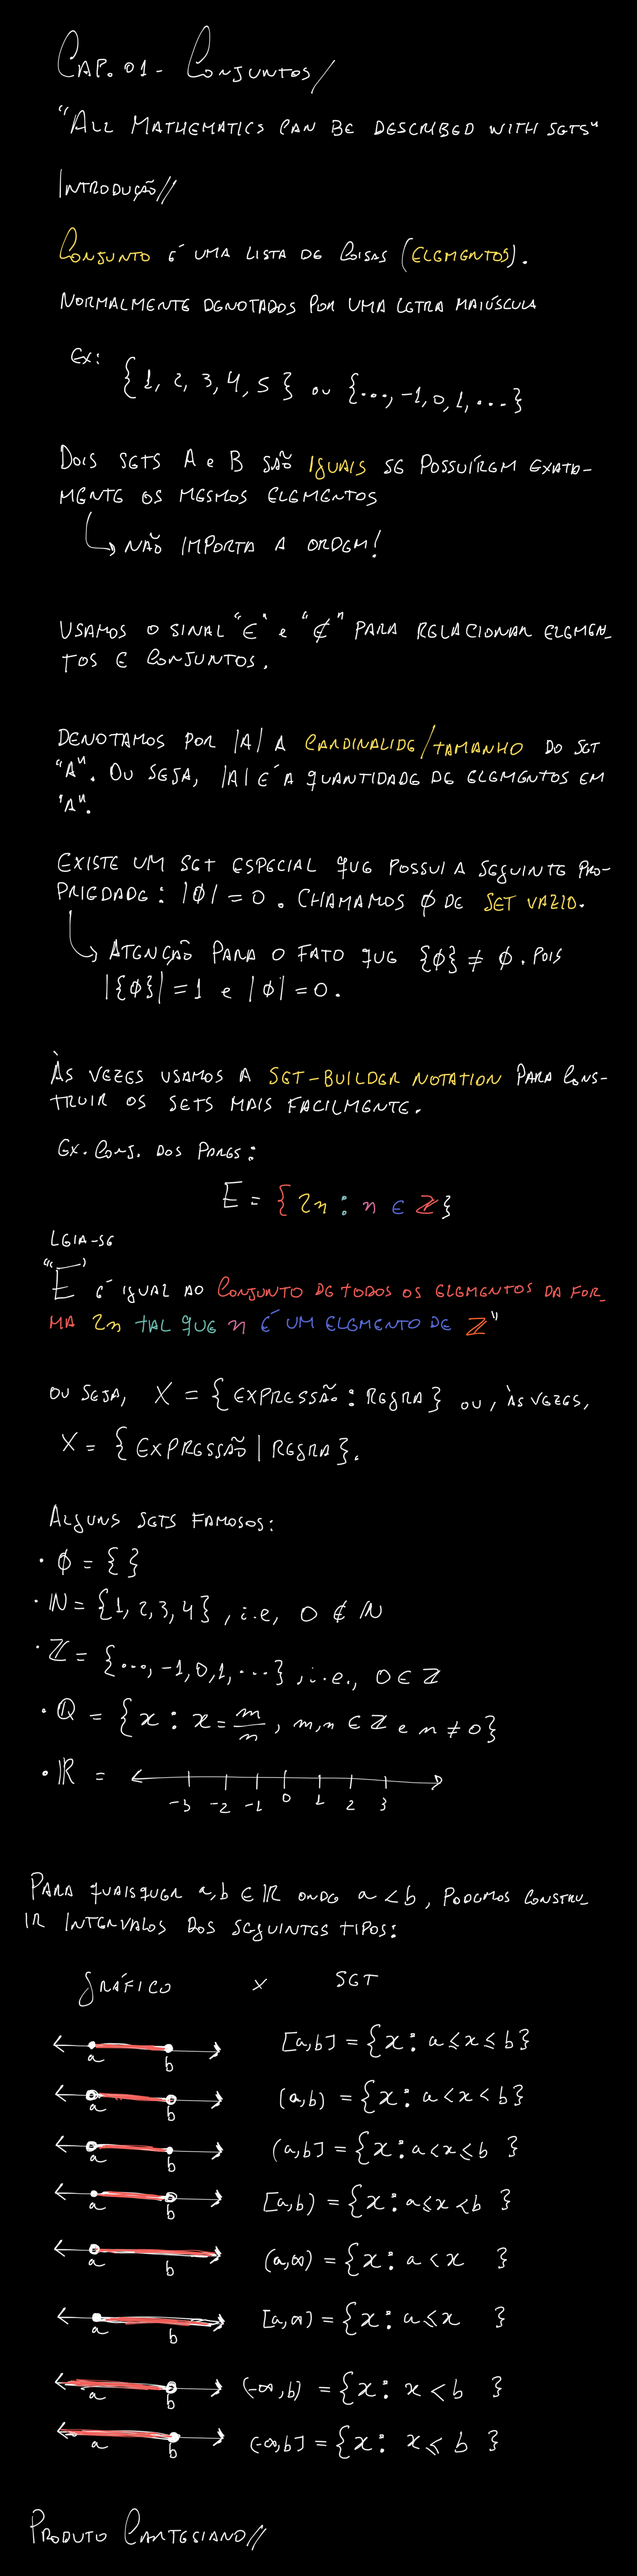 CAP. 01 - CONJUNTOS/
"ALL MATHEMATICS CAN BE DESCRIBED WITH SETS"
INTRODUÇÃO//
CONJUNTO É UMA LISTA DE COISAS (ELEMENTOS).
NORMALMENTE DENOTADOS POR UMA LETRA MAIÚSCULA
EX: {1, 2, 3, 4, 5} OU {..., -1, 0, 1, ...}
DOIS SETS A e B SÃO IGUAIS SE POSSUÍREM EXATA-
MENTE OS MESMOS ELEMENTOS
↳ NÃO IMPORTA A ORDEM!
USAMOS O SINAL "∈" e "∉" PARA RELACIONAR ELEMEN-
TOS E CONJUNTOS.
DENOTAMOS POR |A| A CARDINALIDE/TAMANHO DO SET
"A". OU SEJA, |A| É A QUANTIDADE DE ELEMENTOS EM
"A".
EXISTE UM SET ESPECIAL QUE POSSUI A SEGUINTE PRO-
PRIEDADE: |∅| = 0. CHAMAMOS ∅ DE SET VAZIO.
↳ ATENÇÃO PARA O FATO QUE {∅} ≠ ∅. POIS
|{∅}| = 1 e |∅| = 0.
ÀS VEZES USAMOS A SET-BUILDER NOTATION PARA CONS-
TRUIR OS SETS MAIS FACILMENTE.
EX. CONJ. DOS PARES:
E = {2n : n ∈ ℤ}
LEIA-SE
"E É IGUAL AO CONJUNTO DE TODOS OS ELEMENTOS DA FOR-
MA 2n TAL QUE n É UM ELEMENTO DE ℤ"
OU SEJA, X = {EXPRESSÃO : REGRA} OU, ÀS VEZES,
X = {EXPRESSÃO | REGRA}.
ALGUNS SETS FAMOSOS:
· ∅ = { }
· ℕ = {1, 2, 3, 4}, i.e, 0 ∉ ℕ
· ℤ = {..., -1, 0, 1, ...}, i.e., 0 ∈ ℤ
· ℚ = {x : x = m/n, m,n ∈ ℤ e n ≠ 0}
· ℝ =
-3 -2 -1 0 1 2 3
PARA QUAISQUER a, b ∈ ℝ ONDE a < b, PODEMOS CONSTRU-
IR INTERVALOS DOS SEGUINTES TIPOS:
GRÁFICO x SET
a b [a,b] = {x : a ≤ x ≤ b}
a b (a,b) = {x : a < x < b}
a b (a,b] = {x : a < x ≤ b}
a b [a,b) = {x : a ≤ x < b}
a b (a,∞) = {x : a < x }
a b [a,∞) = {x : a ≤ x }
a b (-∞,b) = {x : x < b }
a b (-∞,b] = {x : x ≤ b }
PRODUTO CARTESIANO//